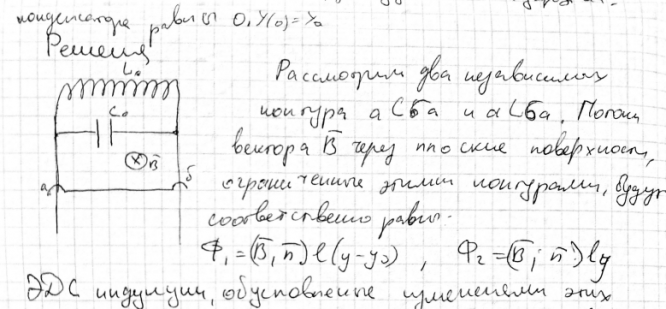 конденсатора равны 0, y(0)=y₀
Решения
L₀
C₀
B̄
а
б
Рассмотрим два независимых
контура aCба и aLба. Поток
вектора B̄ через плоские поверхности,
ограниченные этими контурами, будут
соответственно равны.
Ф₁=(B̄, n̄) l (y-y₀) , Ф₂=(B̄; n̄) ly
ЭДС индукции, обусловленные изменениями этих